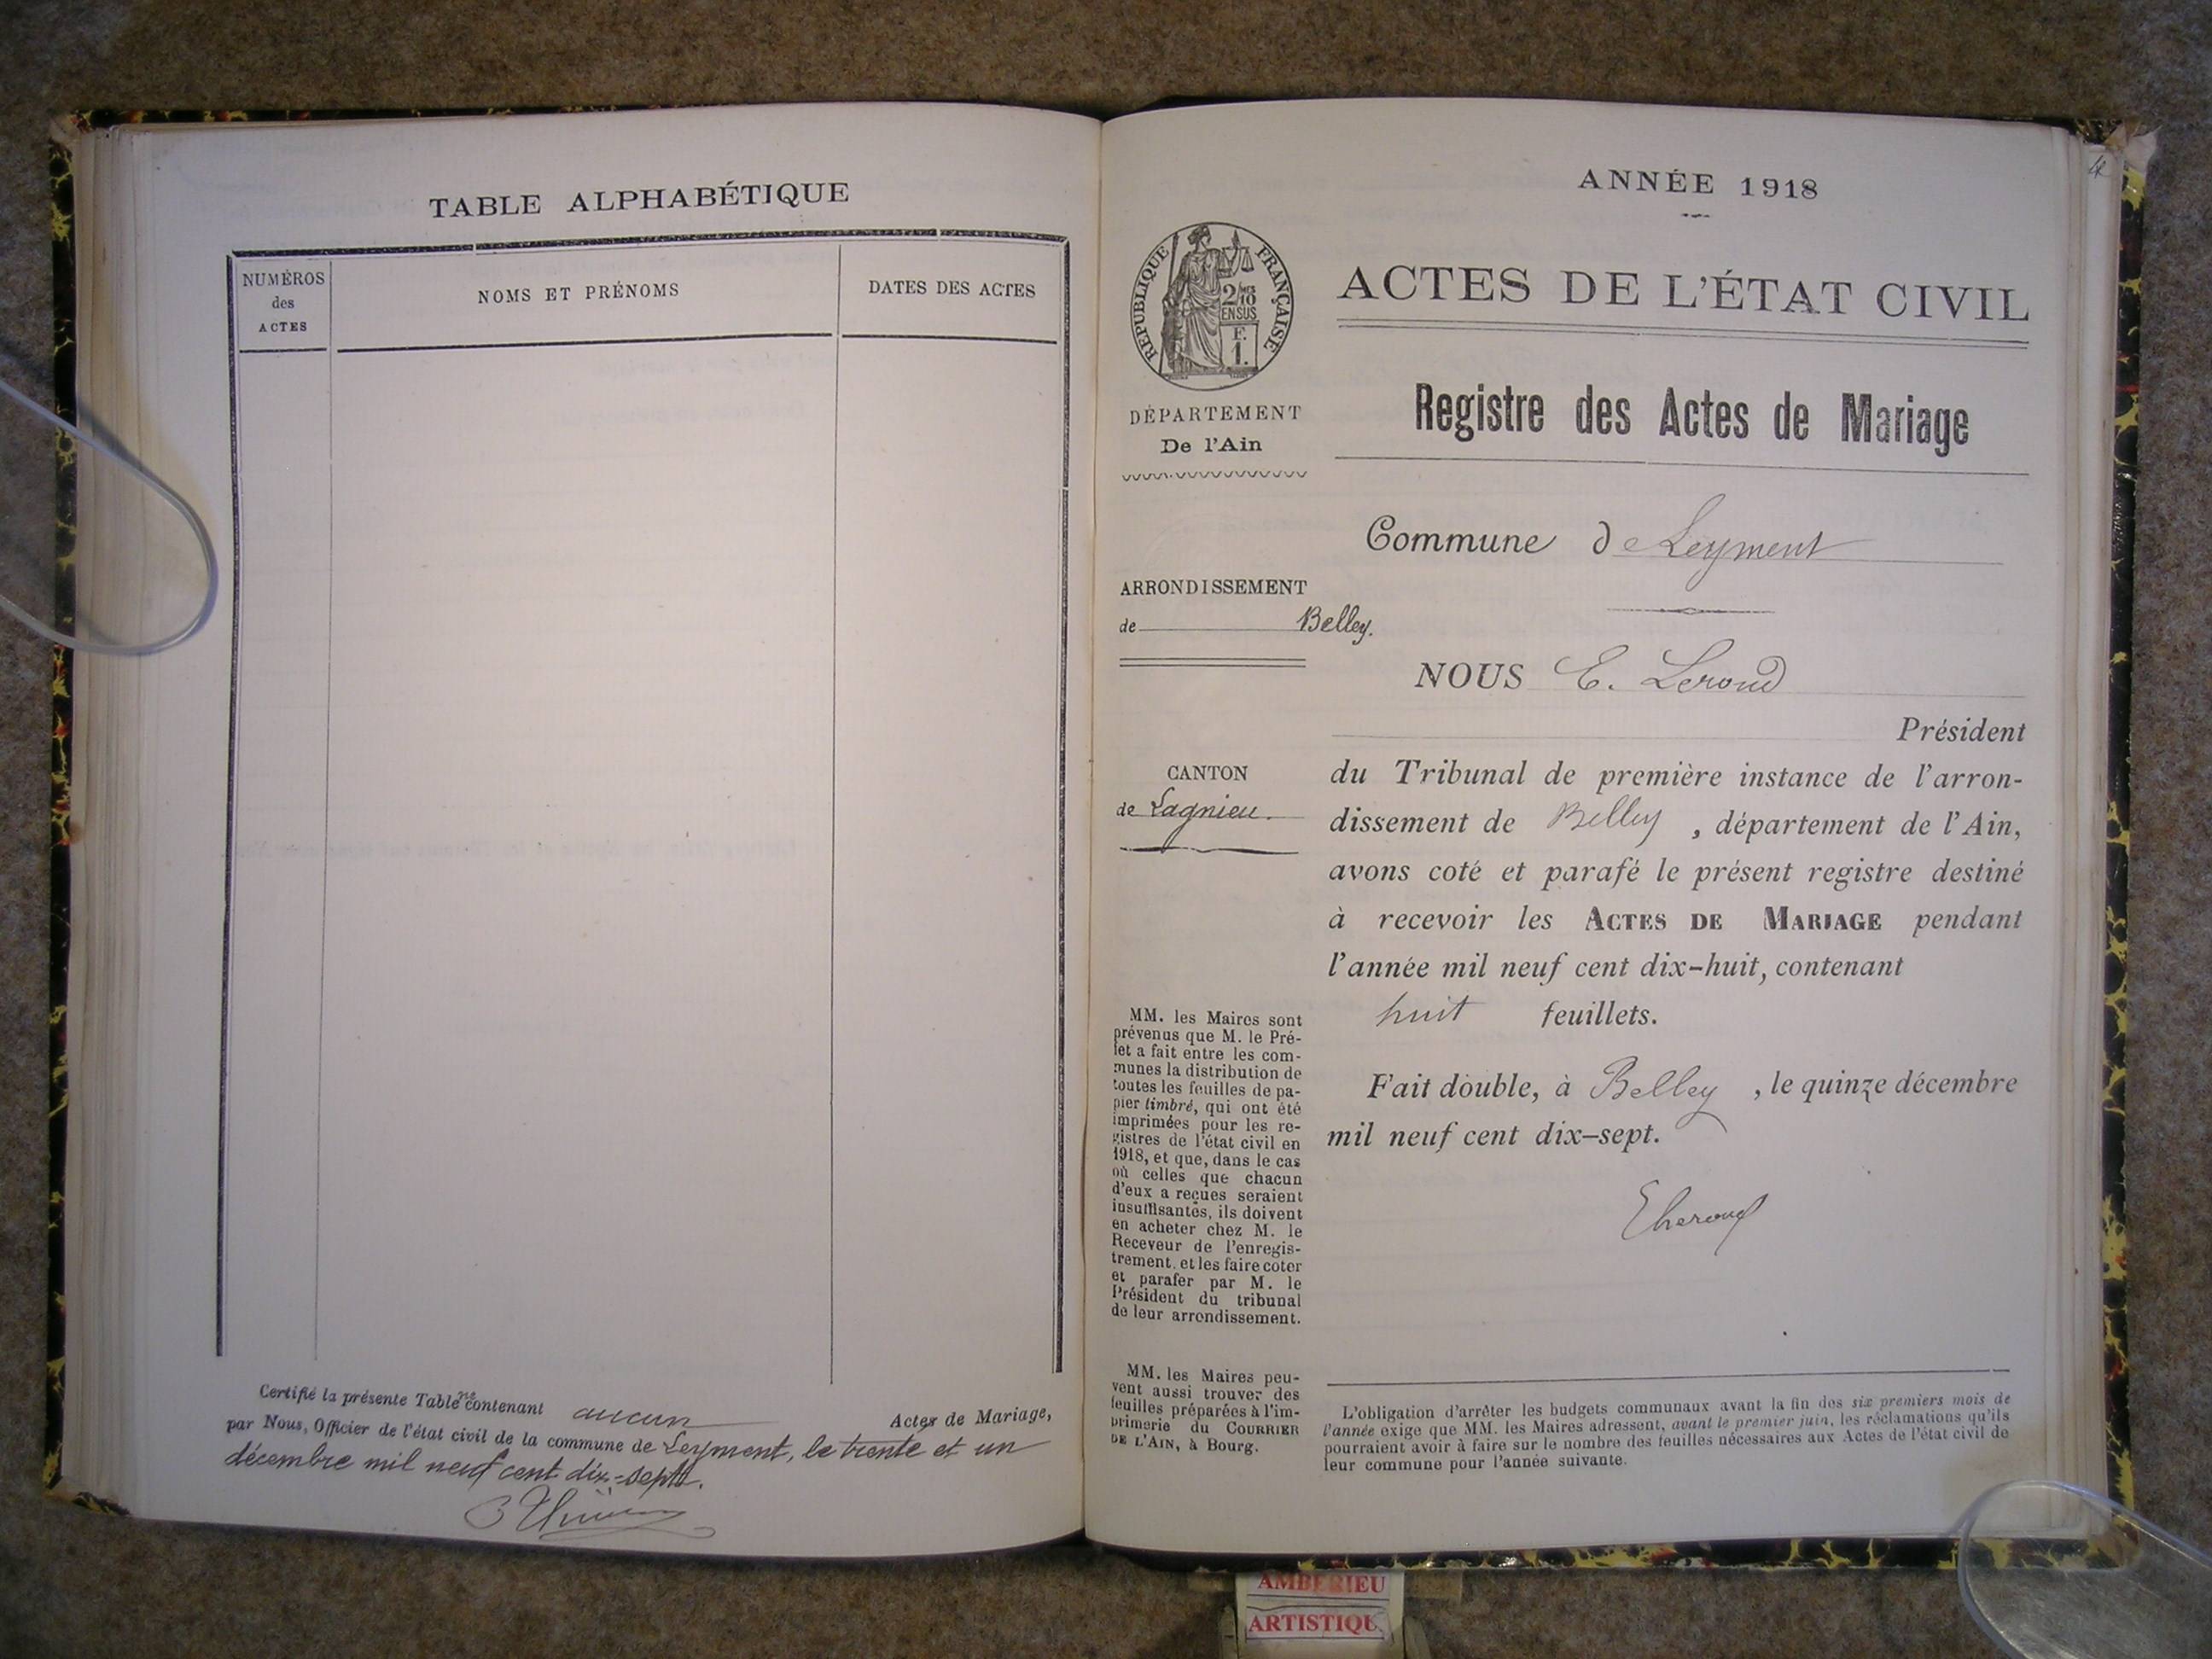 TABLE ALPHABÉTIQUE
NUMÉROS
des
ACTES
NOMS ET PRÉNOMS
DATES DES ACTES
Certifié la présente Table ne contenant aucun Actes de Mariage,
par Nous, Officier de l'état civil de la commune de Leyment, le trente et un
décembre mil neuf cent dix-sept.
4
ANNÉE 1918
RÉPUBLIQUE FRANÇAISE
2/10
EN SUS
F.
1.
ACTES DE L'ÉTAT CIVIL
DÉPARTEMENT
De l'Ain
Registre des Actes de Mariage
Commune de Leyment
ARRONDISSEMENT
de Belley.
NOUS E. Lerond
Président
CANTON
de Lagnieu.
du Tribunal de première instance de l'arron-
dissement de Belley, département de l'Ain,
avons coté et parafé le présent registre destiné
à recevoir les ACTES DE MARIAGE pendant
l'année mil neuf cent dix-huit, contenant
huit feuillets.
Fait double, à Belley, le quinze décembre
mil neuf cent dix-sept.
MM. les Maires sont
prévenus que M. le Pré-
fet a fait entre les com-
munes la distribution de
toutes les feuilles de pa-
pier timbré, qui ont été
imprimées pour les re-
gistres de l'état civil en
1918, et que, dans le cas
où celles que chacun
d'eux a reçues seraient
insuffisantes, ils doivent
en acheter chez M. le
Receveur de l'enregis-
trement, et les faire coter
et parafer par M. le
Président du tribunal
de leur arrondissement.
MM. les Maires peu-
vent aussi trouver des
feuilles préparées à l'im-
primerie du COURRIER
DE L'AIN, à Bourg.
L'obligation d'arrêter les budgets communaux avant la fin des six premiers mois de
l'année exige que MM. les Maires adressent, avant le premier juin, les réclamations qu'ils
pourraient avoir à faire sur le nombre des feuilles nécessaires aux Actes de l'état civil de
leur commune pour l'année suivante.
AMBERIEU
ARTISTIQU